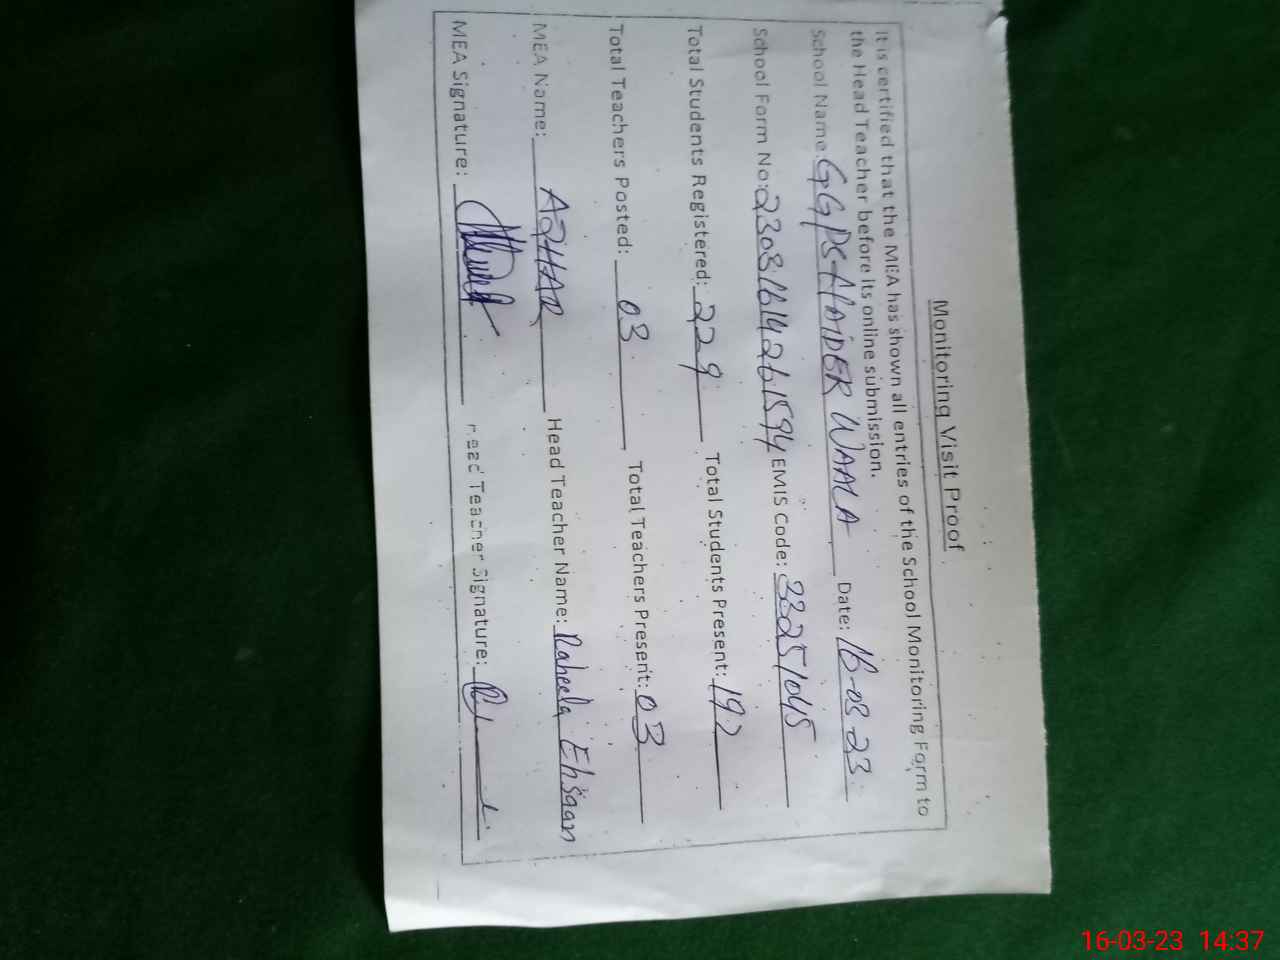 Monitoring Visit Proof
It is certified that the MEA has shown all entries of the School Monitoring Form to
the Head Teacher before its online submission.
School Name: GGPS HAIDER WAALA Date: 16-03-23
School Form No: 23031614261594 EMIS Code: 33251045
Total Students Registered: 229 Total Students Present: 192
Total Teachers Posted: 03 Total Teachers Present: 03
MEA Name: AZHAR Head Teacher Name: Raheela Ehsaan
MEA Signature: Head Teacher Signature:
16-03-23 14:37